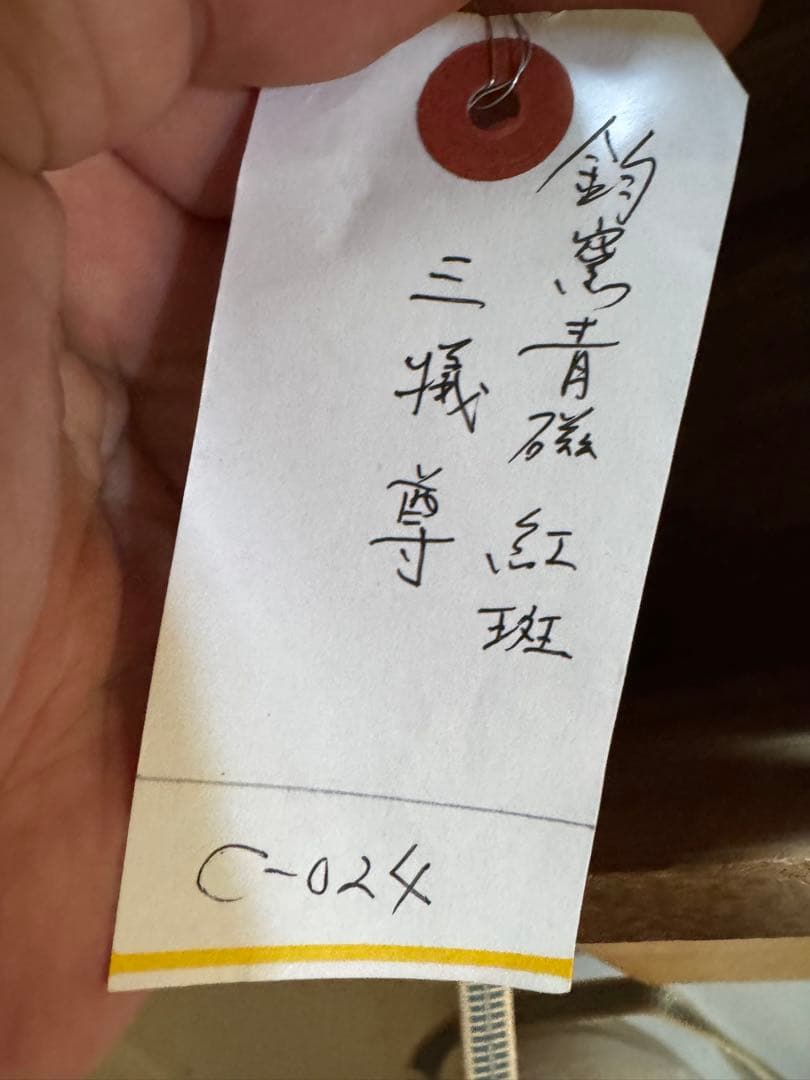 鈞窯青磁紅斑
三犠尊
C-024